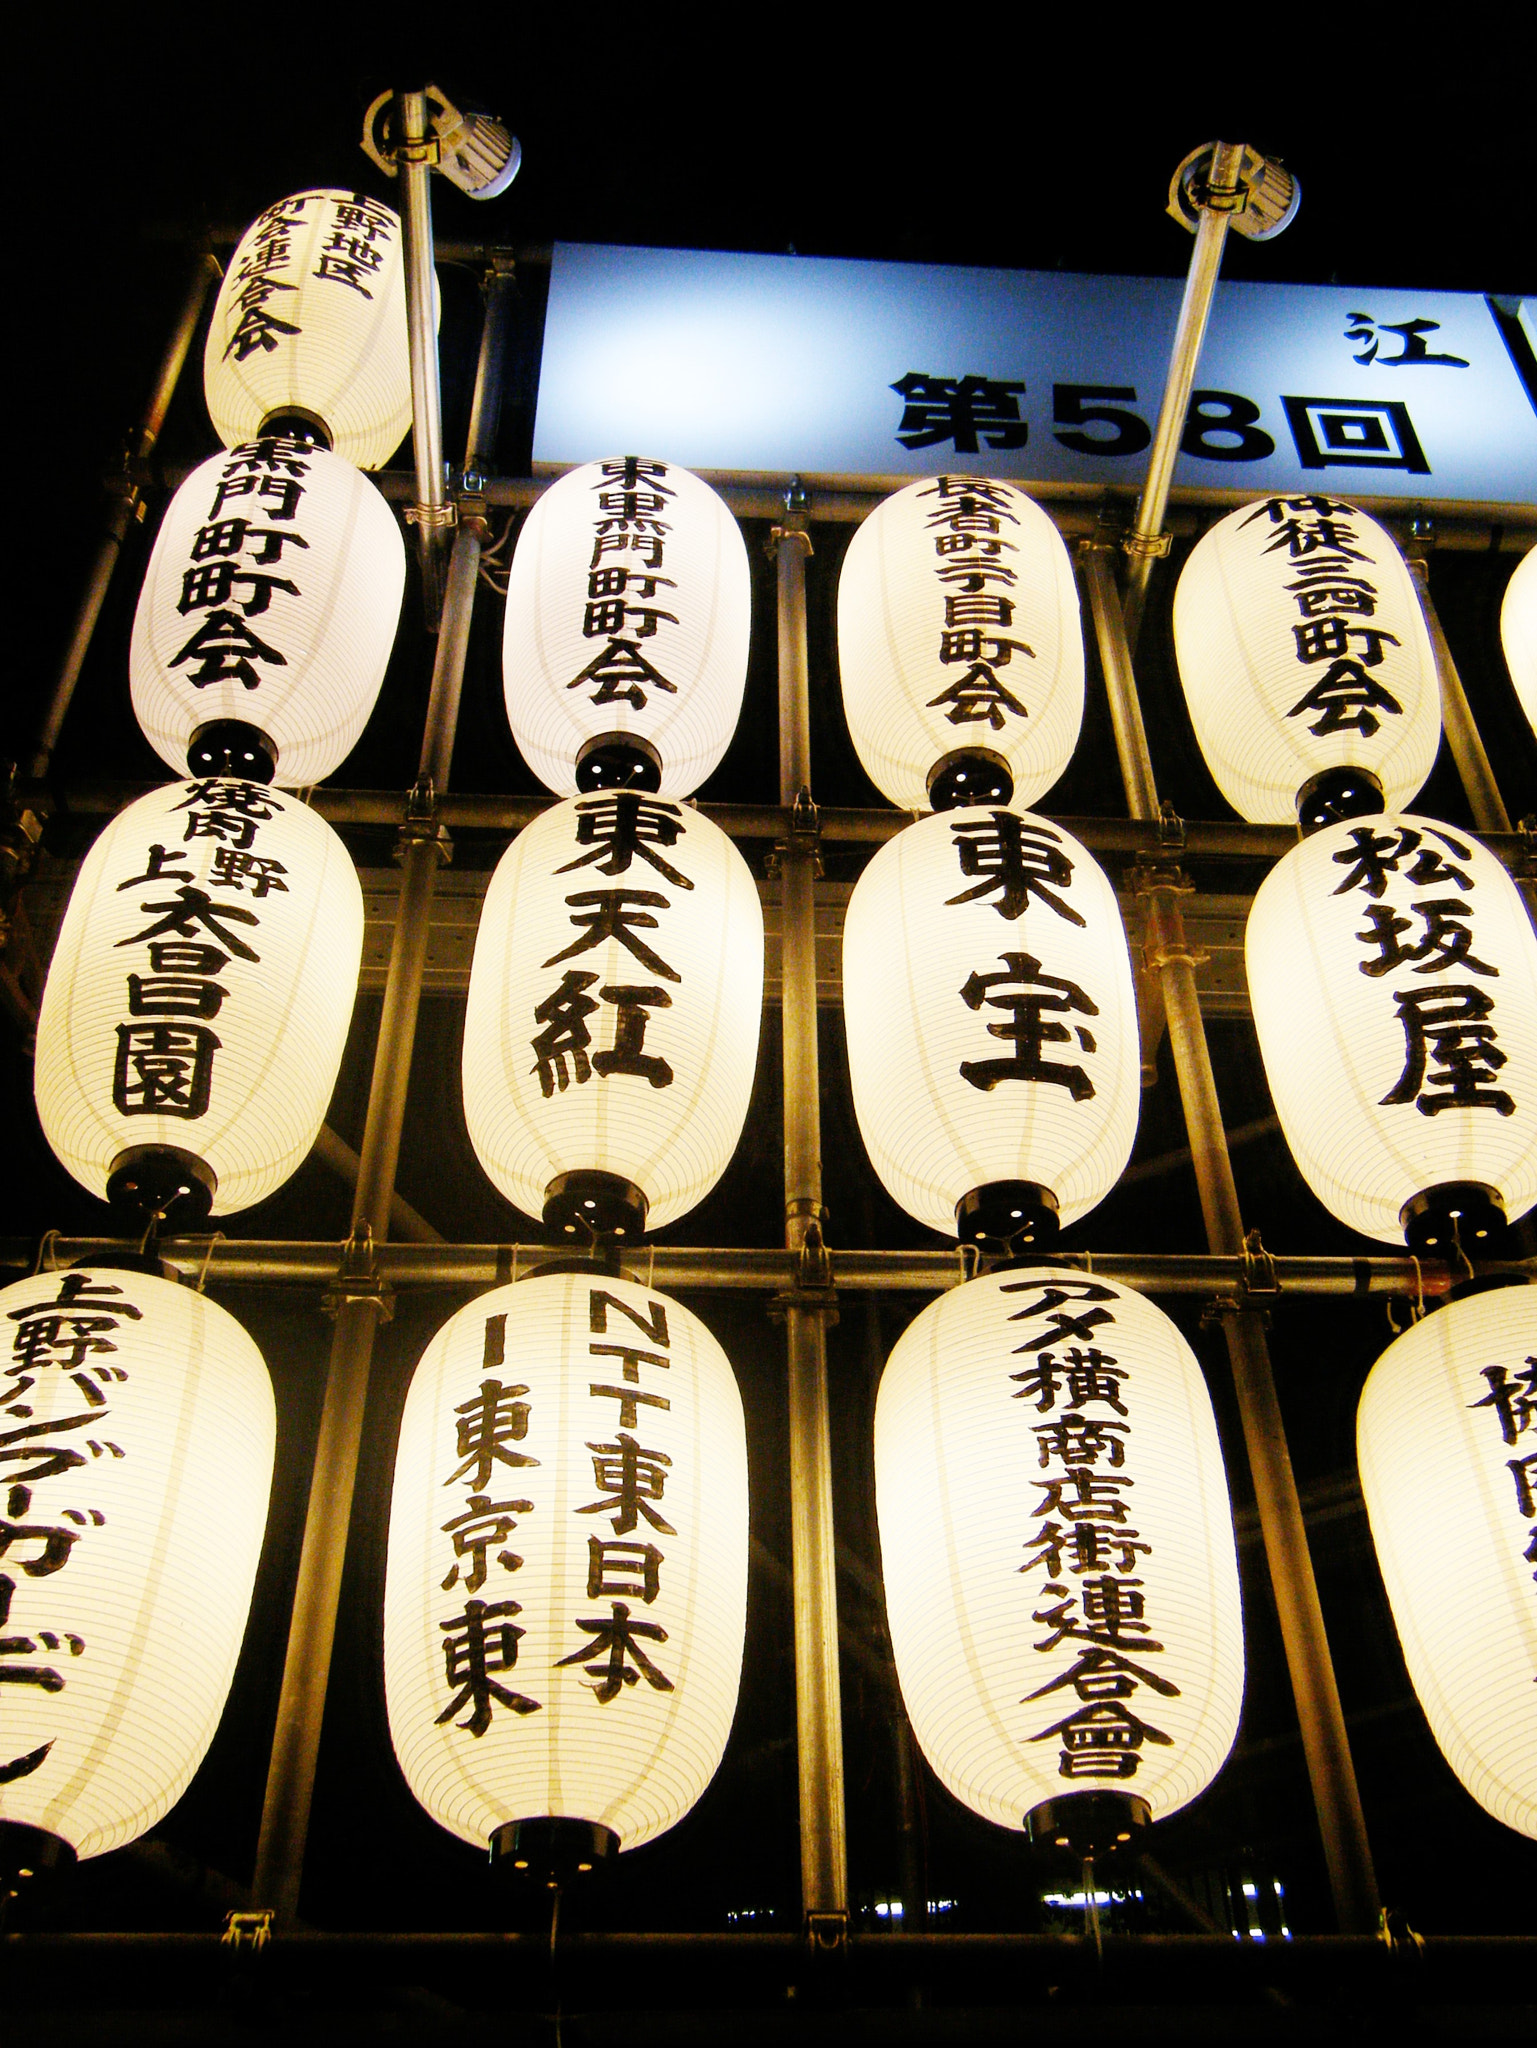 江
第58回
上野地区
町会連合会
黒門町町会
東黒門町町会
長者町一丁目町会
仲徒三四町会
焼肉
上野
太昌園
東天紅
東宝
松坂屋
上野バンブーガーデン
NTT東日本
ー東京東
アメ横商店街連合會